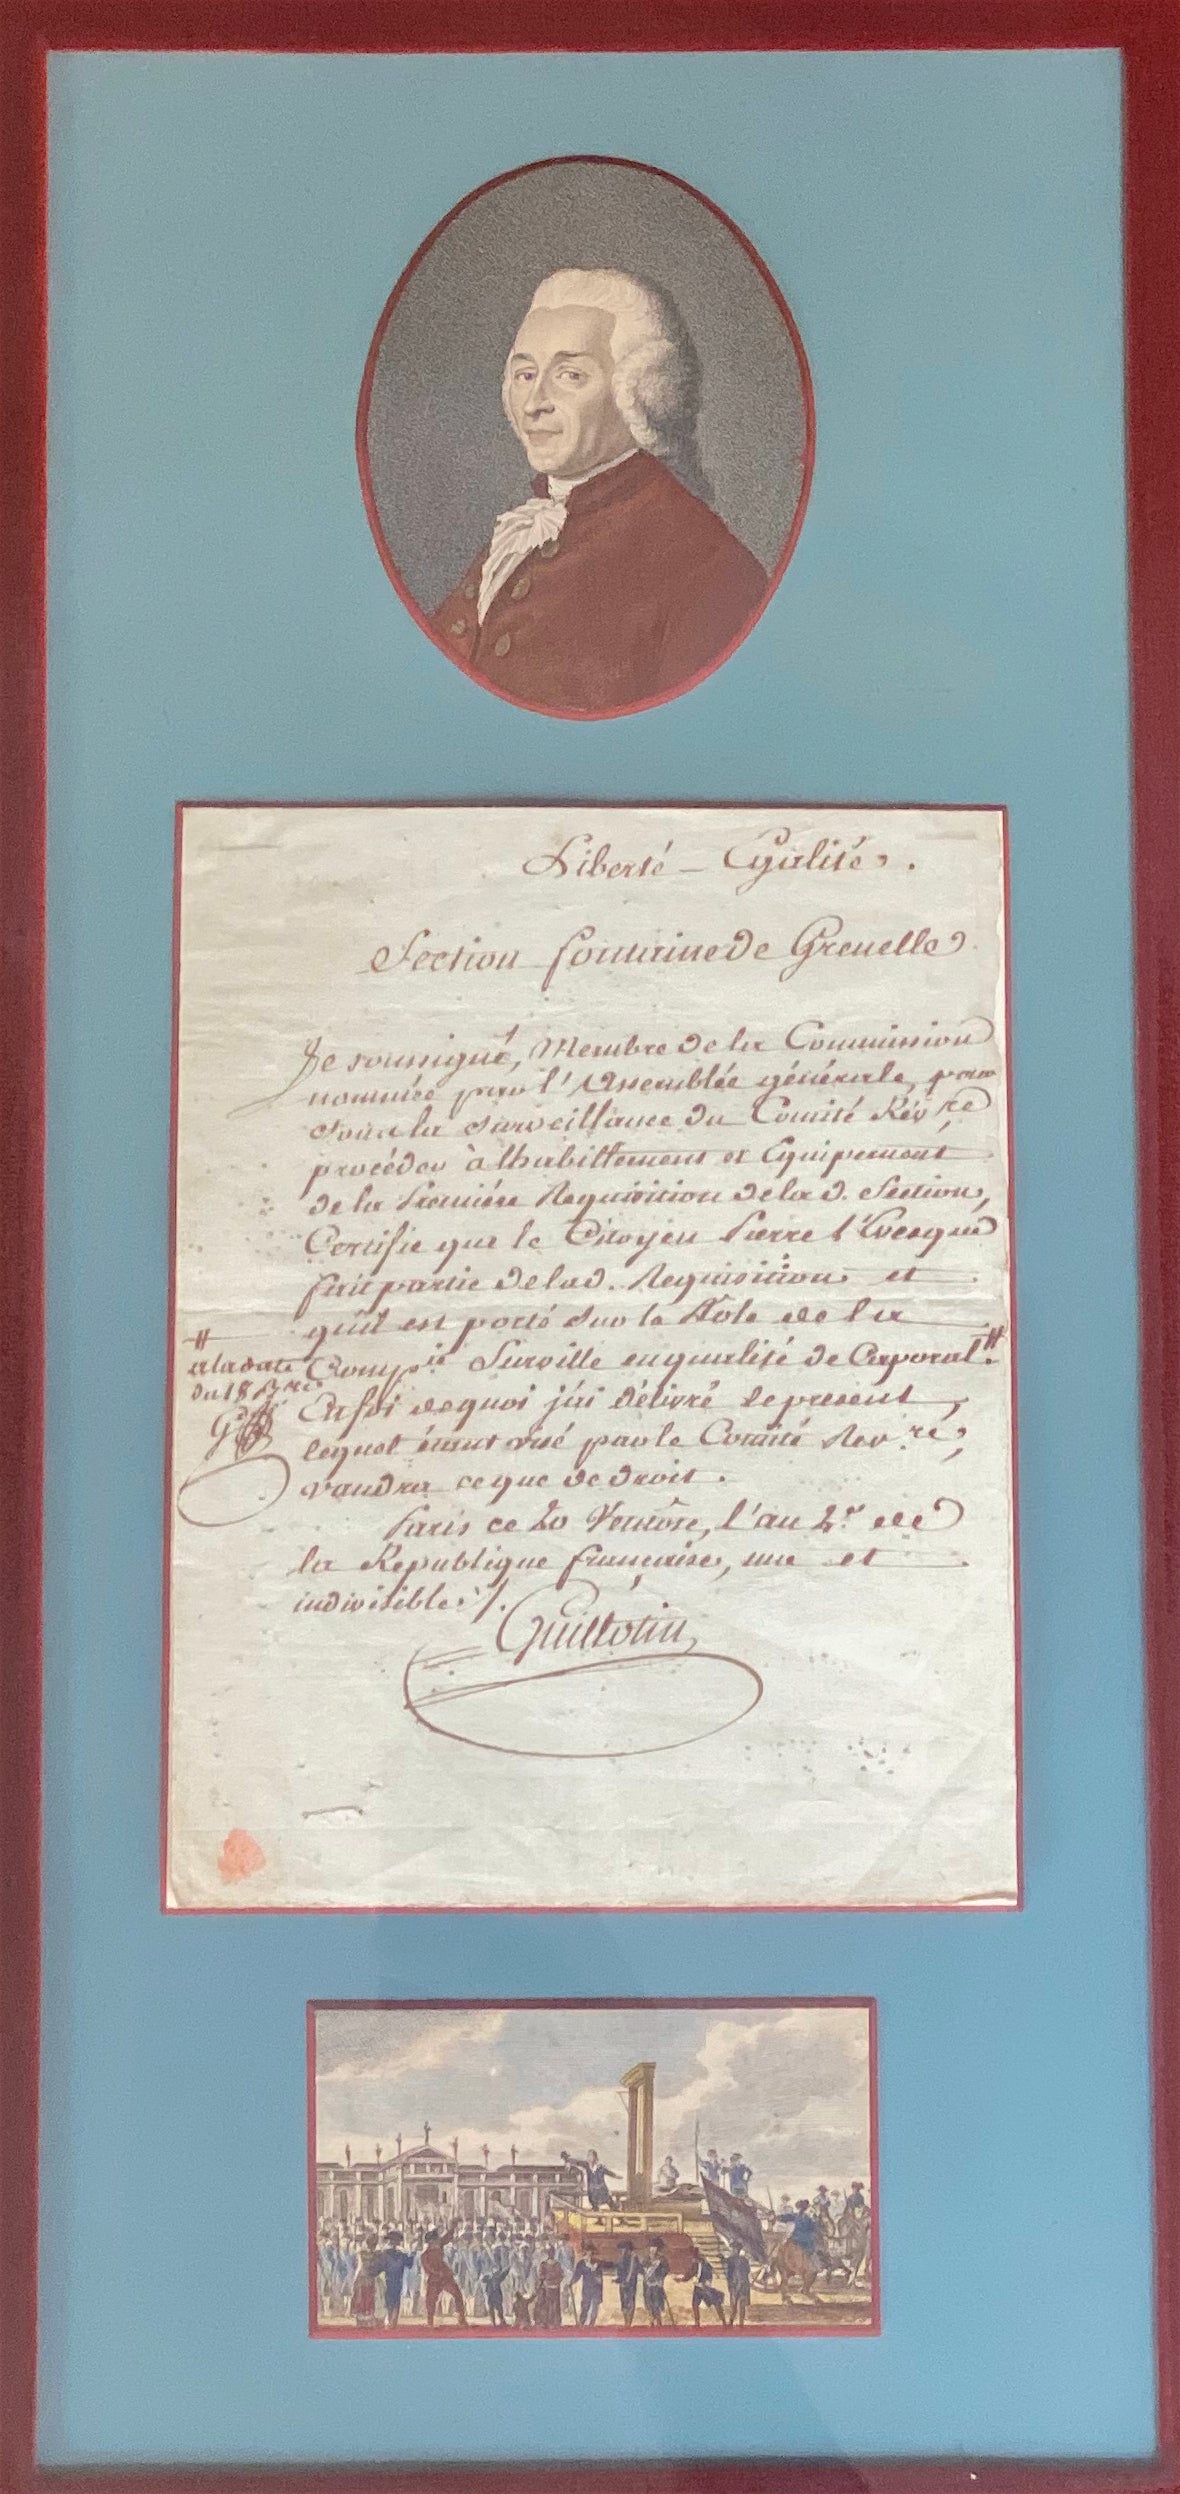 Liberté – Egalité.
Section fontaine de Grenelle
Je soussigné, Membre de la Commission
nommée par l'Assemblée générale, pour
sous la surveillance du Comité Rév.re
procéder à lhabillement et Equipement
de la Premiére Requisition de la d. Section,
Certifie que le Citoyen Pierre l'Evesque
fait partie de la d. Requisition et
qu'il est porté sur le Rôle de la
Comp.ie Surville en qualité de Caporal. #
#
a la date
du 18 Bre
En foi de quoi j'ai délivré le present,
lequel étant visé par le Comité Rev.re,
vaudra ce que de droit.
Paris ce 20 Ventôse, l'an 2.e de
la Republique française, une et
indivisible ./.
Guillotin